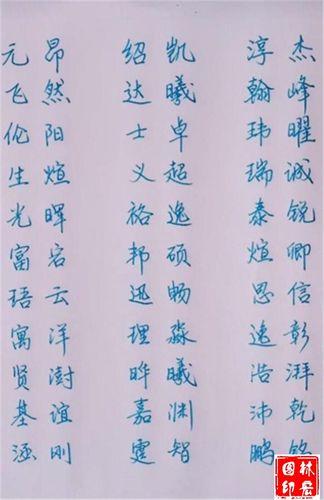 元昂 绍凯 淳杰
飞然 达曦 翰峰
伦阳 士卓 玮曜
生煊 义超 瑞诚
光晖 裕逸 泰锐
富 邦硕 煊卿
云 迅畅 思信
寓洋 理淼 远彰
贤澍 晔曦 浩湃
基谊 嘉渊 沛乾
涵刚 霆智 鹏铭